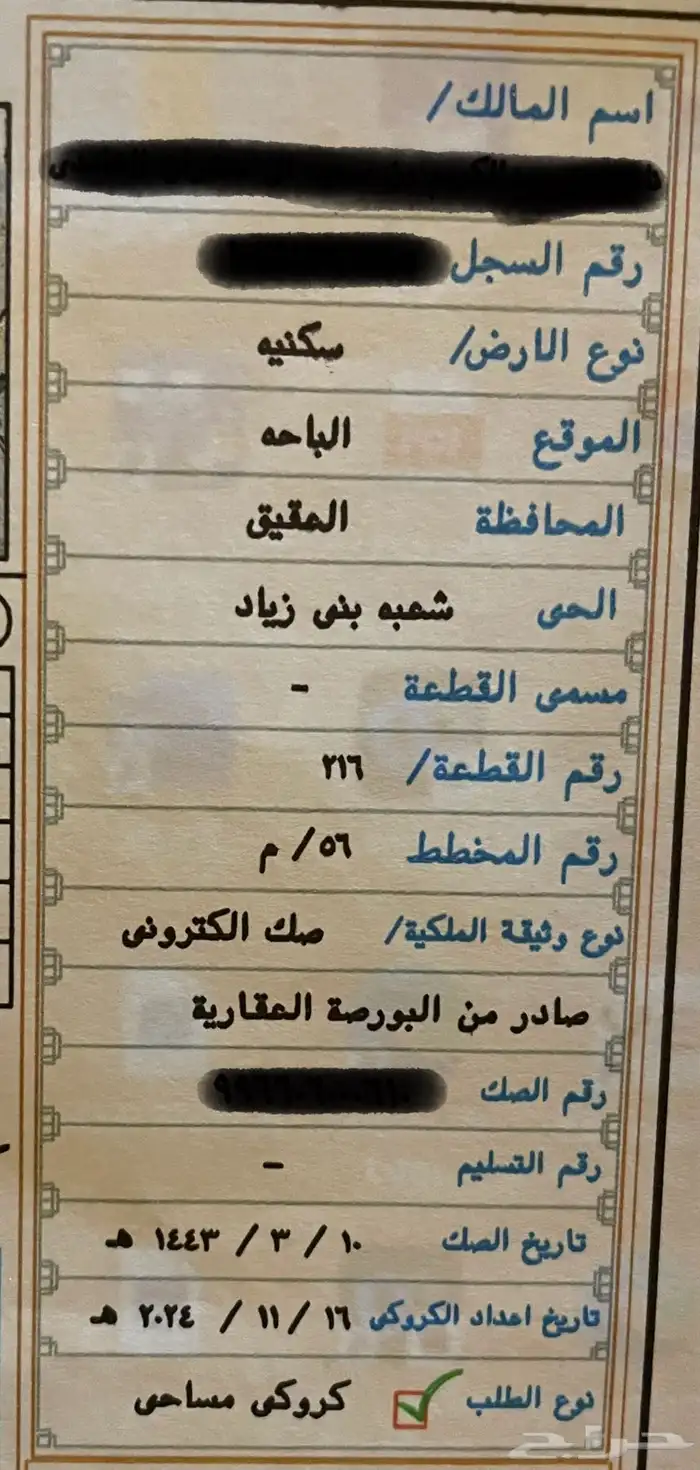 اسم المالك/
رقم السجل
نوع الارض/ سكنيه
الموقع الباحه
المحافظة العقيق
الحى شعبه بنى زياد
مسمى القطعة -
رقم القطعة/ ٢١٦
رقم المخطط ٥٦/ م
نوع وثيقة الملكية/ صك الكترونى
صادر من البورصة العقارية
رقم الصك
رقم التسليم -
تاريخ الصك ١٠ / ٣ / ١٤٤٣ هـ
تاريخ اعداد الكروكى ١٦ / ١١ / ٢٠٢٤ هـ
نوع الطلب كروكى مساحى
حراج